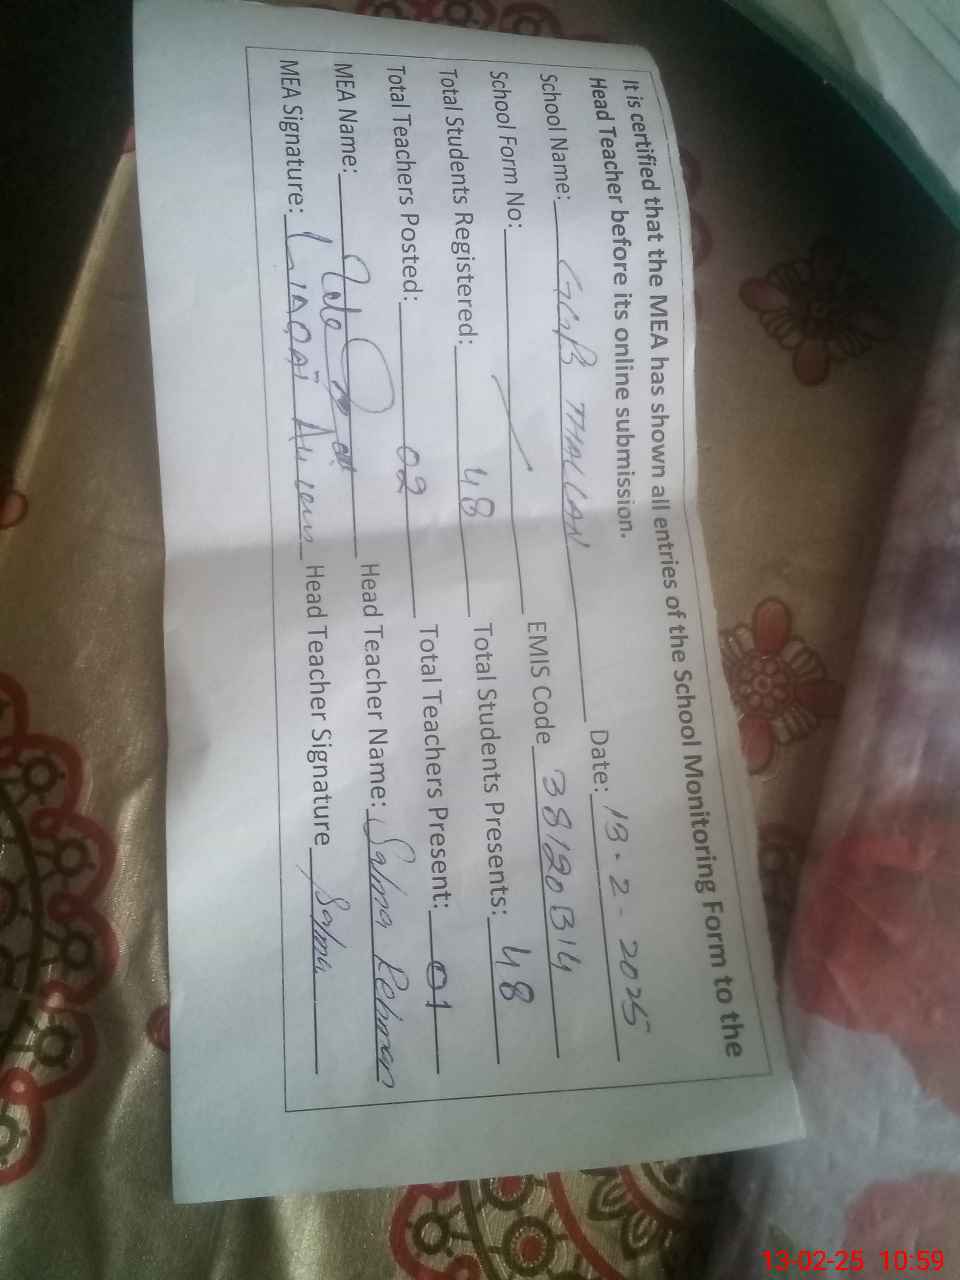 It is certified that the MEA has shown all entries of the School Monitoring Form to the
Head Teacher before its online submission.
School Name: Date: 13-2-2025
School Form No: EMIS Code 38120314
Total Students Registered: 48 Total Students Presents: 48
Total Teachers Posted: 02 Total Teachers Present: 01
MEA Name: Head Teacher Name: Salma Rehman
MEA Signature: LIAQAT Head Teacher Signature Salma
13-02-25 10:59